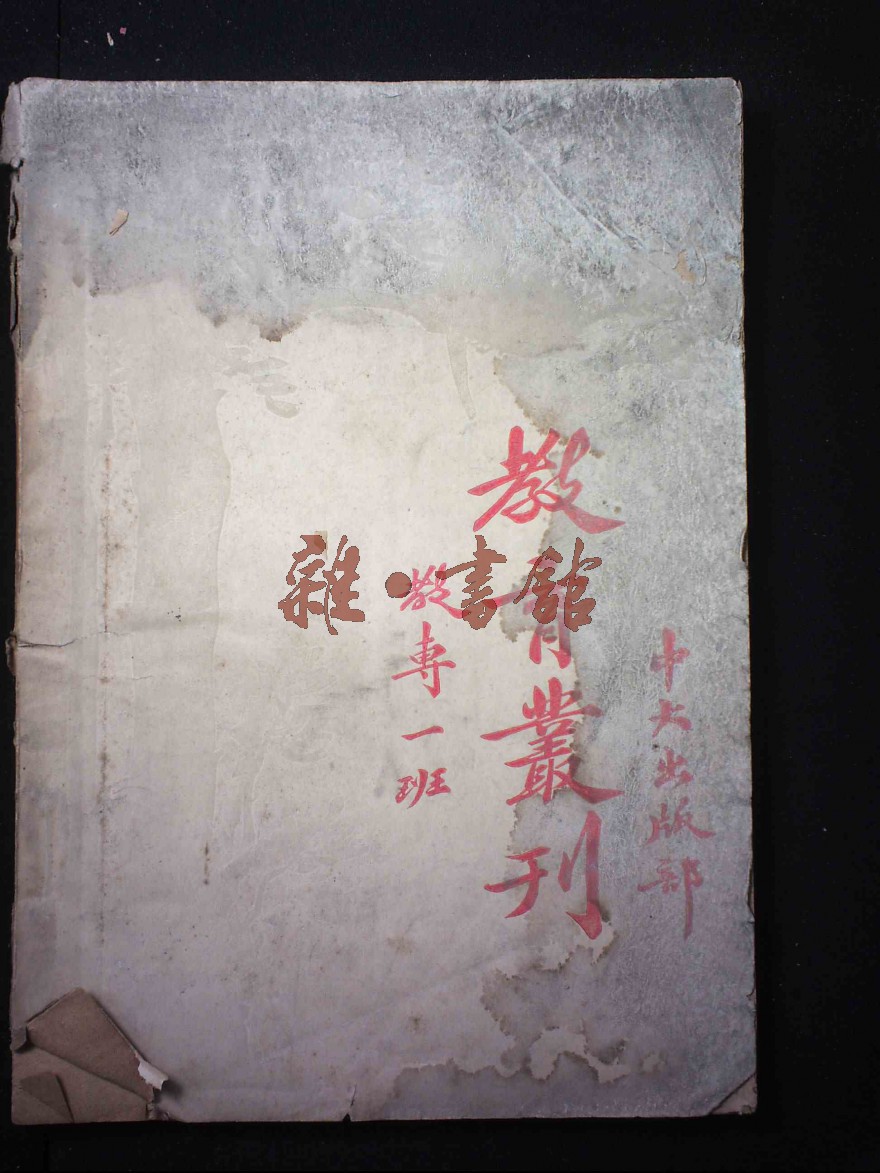 中大出版部
教育叢刊
教專一班
雜·書館